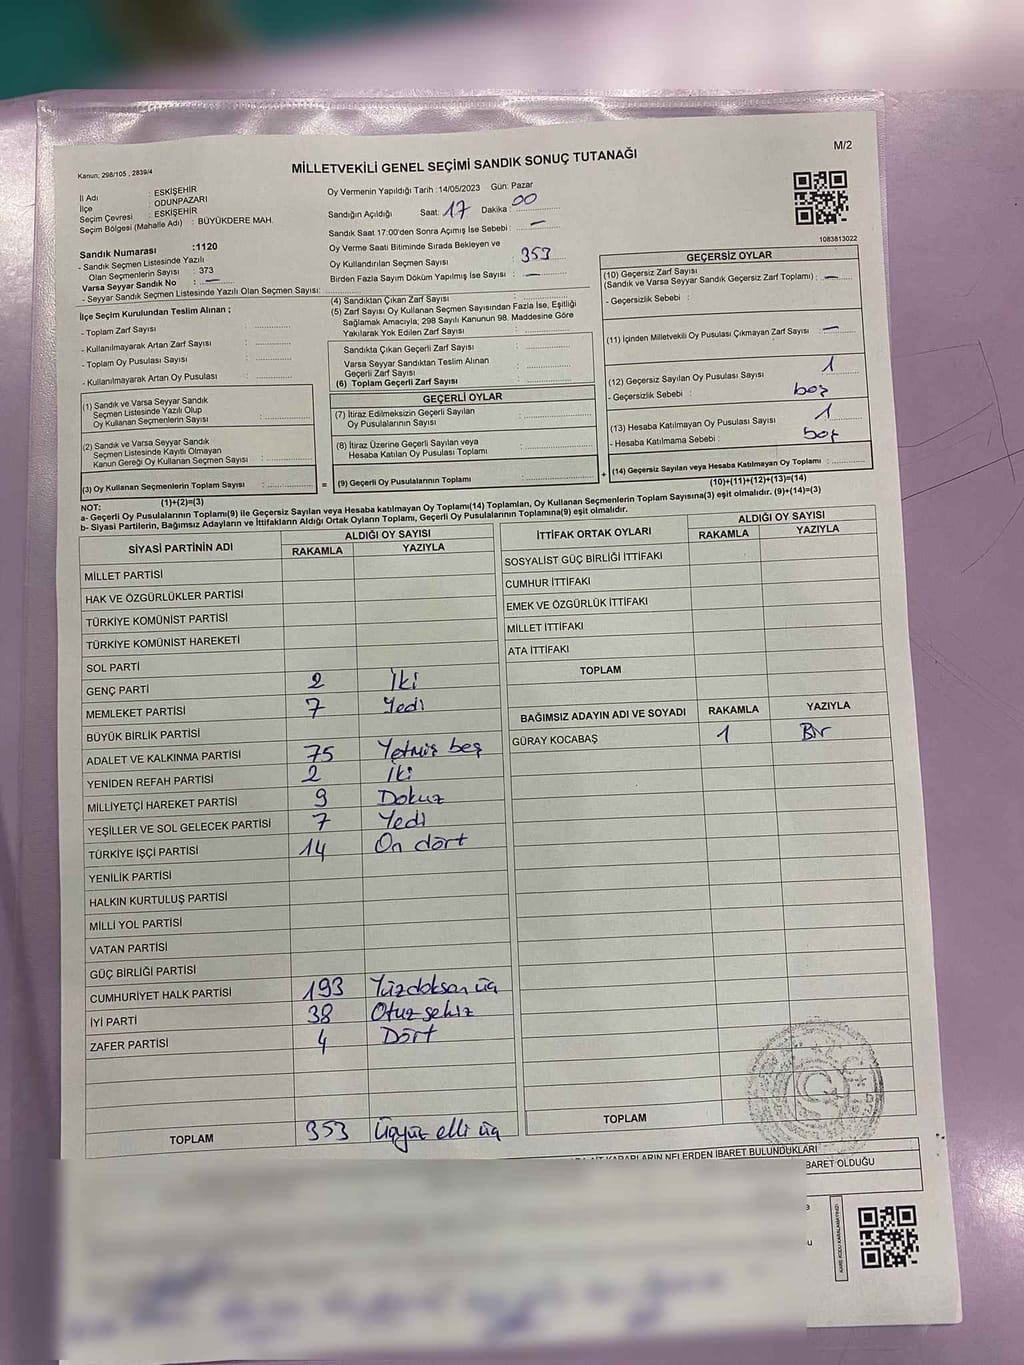 M/2
Kanun: 298/105 , 2839/4
MİLLETVEKİLİ GENEL SEÇİMİ SANDIK SONUÇ TUTANAĞI
İl Adı : ESKİŞEHİR
İlçe : ODUNPAZARI
Seçim Çevresi : ESKİŞEHİR
Seçim Bölgesi (Mahalle Adı) : BÜYÜKDERE MAH.
Sandık Numarası :1120
- Sandık Seçmen Listesinde Yazılı
Olan Seçmenlerin Sayısı : 373
Varsa Seyyar Sandık No : —
- Seyyar Sandık Seçmen Listesinde Yazılı Olan Seçmen Sayısı:
Oy Vermenin Yapıldığı Tarih :14/05/2023 Gün: Pazar
Sandığın Açıldığı Saat: 17 Dakika: 00
Sandık Saat 17:00'den Sonra Açımış İse Sebebi : —
Oy Verme Saati Bitiminde Sırada Bekleyen ve
Oy Kullandırılan Seçmen Sayısı : 353
Birden Fazla Sayım Döküm Yapılmış İse Sayısı : —
1083813022
İlçe Seçim Kurulundan Teslim Alınan ;
- Toplam Zarf Sayısı :
- Kullanılmayarak Artan Zarf Sayısı :
- Toplam Oy Pusulası Sayısı :
- Kullanılmayarak Artan Oy Pusulası :
(1) Sandık ve Varsa Seyyar Sandık
Seçmen Listesinde Yazılı Olup
Oy Kullanan Seçmenlerin Sayısı :
(2) Sandık ve Varsa Seyyar Sandık
Seçmen Listesinde Kayıtlı Olmayan
Kanun Gereği Oy Kullanan Seçmen Sayısı :
(3) Oy Kullanan Seçmenlerin Toplam Sayısı :
(1)+(2)=(3)
(4) Sandıktan Çıkan Zarf Sayısı :
(5) Zarf Sayısı Oy Kullanan Seçmen Sayısından Fazla İse, Eşitliği
Sağlamak Amacıyla; 298 Sayılı Kanunun 98. Maddesine Göre
Yakılarak Yok Edilen Zarf Sayısı :
Sandıkta Çıkan Geçerli Zarf Sayısı :
Varsa Seyyar Sandıktan Teslim Alınan
Geçerli Zarf Sayısı :
(6) Toplam Geçerli Zarf Sayısı :
GEÇERLİ OYLAR
(7) İtiraz Edilmeksizin Geçerli Sayılan
Oy Pusulalarının Sayısı :
(8) İtiraz Üzerine Geçerli Sayılan veya
Hesaba Katılan Oy Pusulası Toplamı :
= (9) Geçerli Oy Pusulalarının Toplamı : +
GEÇERSİZ OYLAR
(10) Geçersiz Zarf Sayısı
(Sandık ve Varsa Seyyar Sandık Geçersiz Zarf Toplamı) : —
- Geçersizlik Sebebi :
(11) İçinden Milletvekili Oy Pusulası Çıkmayan Zarf Sayısı : —
(12) Geçersiz Sayılan Oy Pusulası Sayısı : 1
- Geçersizlik Sebebi : boş
(13) Hesaba Katılmayan Oy Pusulası Sayısı : 1
- Hesaba Katılmama Sebebi : boş
(14) Geçersiz Sayılan veya Hesaba Katılmayan Oy Toplamı :
(10)+(11)+(12)+(13)=(14)
NOT:
a- Geçerli Oy Pusulalarının Toplamı(9) ile Geçersiz Sayılan veya Hesaba katılmayan Oy Toplamı(14) Toplamları, Oy Kullanan Seçmenlerin Toplam Sayısına(3) eşit olmalıdır. (9)+(14)=(3)
b- Siyasi Partilerin, Bağımsız Adayların ve İttifakların Aldığı Ortak Oyların Toplamı, Geçerli Oy Pusulalarının Toplamına(9) eşit olmalıdır.
SİYASİ PARTİNİN ADI ALDIĞI OY SAYISI
RAKAMLA YAZIYLA
MİLLET PARTİSİ
HAK VE ÖZGÜRLÜKLER PARTİSİ
TÜRKİYE KOMÜNİST PARTİSİ
TÜRKİYE KOMÜNİST HAREKETİ
SOL PARTİ
GENÇ PARTİ 2 İki
MEMLEKET PARTİSİ 7 Yedi
BÜYÜK BİRLİK PARTİSİ
ADALET VE KALKINMA PARTİSİ 75 Yetmiş beş
YENİDEN REFAH PARTİSİ 2 İki
MİLLİYETÇİ HAREKET PARTİSİ 9 Dokuz
YEŞİLLER VE SOL GELECEK PARTİSİ 7 Yedi
TÜRKİYE İŞÇİ PARTİSİ 14 On dört
YENİLİK PARTİSİ
HALKIN KURTULUŞ PARTİSİ
MİLLİ YOL PARTİSİ
VATAN PARTİSİ
GÜÇ BİRLİĞİ PARTİSİ
CUMHURİYET HALK PARTİSİ 193 Yüzdoksan üç
İYİ PARTİ 38 Otuz sekiz
ZAFER PARTİSİ 4 Dört
TOPLAM 353 Üçyüz elli üç
İTTİFAK ORTAK OYLARI ALDIĞI OY SAYISI
RAKAMLA YAZIYLA
SOSYALİST GÜÇ BİRLİĞİ İTTİFAKI
CUMHUR İTTİFAKI
EMEK VE ÖZGÜRLÜK İTTİFAKI
MİLLET İTTİFAKI
ATA İTTİFAKI
TOPLAM
BAĞIMSIZ ADAYIN ADI VE SOYADI RAKAMLA YAZIYLA
GÜRAY KOCABAŞ 1 Bir
TOPLAM
NELERDEN İBARET BULUNDUKLARI
BARET OLDUĞU